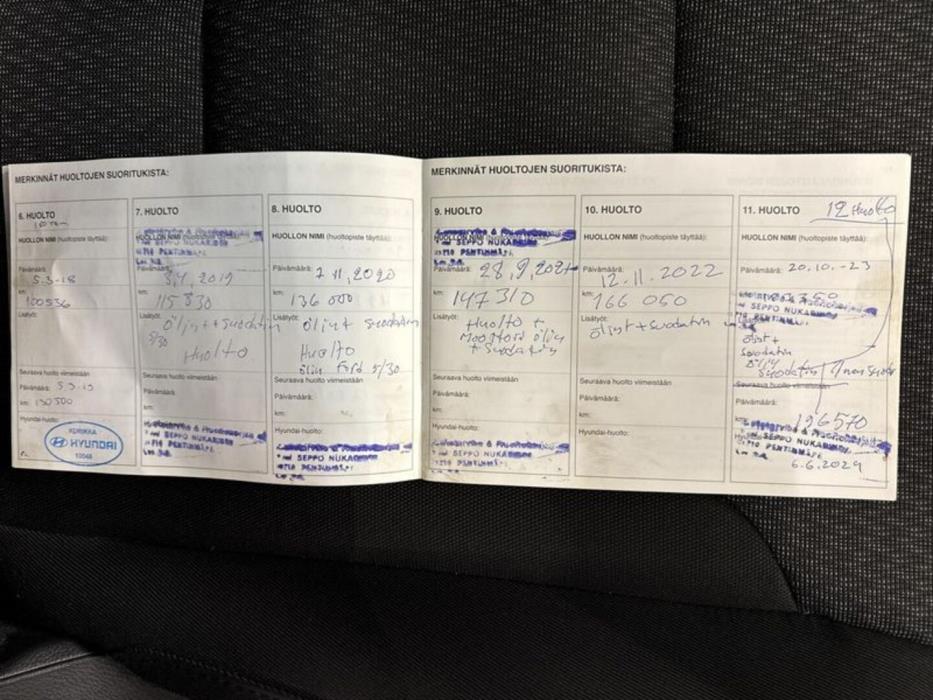 MERKINNÄT HUOLTOJEN SUORITUKISTA:
6. HUOLTO
HUOLLON NIMI (huoltopiste täyttää):
Päivämäärä:
5.3-18
km:
100536
Lisätyöt:
Seuraava huolto viimeistään
Päivämäärä: 5.3.19
km: 130500
Hyundai-huolto:
HYUNDAI
10048
7. HUOLTO
HUOLLON NIMI (huoltopiste täyttää):
SEPPO NUKARINEN
PENTINMÄKI
Päivämäärä:
3.4.2019
km:
115830
Lisätyöt:
öljyt + suodatin
5/30
Huolto
Seuraava huolto viimeistään
Päivämäärä:
km:
Hyundai-huolto:
SEPPO NUKARINEN
PENTINMÄKI
8. HUOLTO
HUOLLON NIMI (huoltopiste täyttää):
Päivämäärä:
7.11.2020
km:
136000
Lisätyöt:
öljyt suodatin
Huolto
öljy Ford 5/30
Seuraava huolto viimeistään
Päivämäärä:
km:
Hyundai-huolto:
SEPPO NUKARINEN
PENTINMÄKI
MERKINNÄT HUOLTOJEN SUORITUKISTA:
9. HUOLTO
HUOLLON NIMI (huoltopiste täyttää):
SEPPO NUKARINEN
PENTINMÄKI
Päivämäärä:
28.9.2021
km:
147310
Lisätyöt:
Huolto +
Moottori öljy
+ Suodatin
Seuraava huolto viimeistään
Päivämäärä:
km:
Hyundai-huolto:
SEPPO NUKARINEN
PENTINMÄKI
10. HUOLTO
HUOLLON NIMI (huoltopiste täyttää):
Päivämäärä:
12.11.2022
km:
166060
Lisätyöt:
öljyt + suodatin
Seuraava huolto viimeistään
Päivämäärä:
km:
Hyundai-huolto:
11. HUOLTO
12 Huolto
HUOLLON NIMI (huoltopiste täyttää):
Päivämäärä:
20.10.-23
km:
SEPPO NUKARINEN
PENTINMÄKI
Lisätyöt:
öljyt +
Suodatin
öljy
suodatin
Seuraava huolto viimeistään
Päivämäärä:
km:
196570
SEPPO NUKARINEN
PENTINMÄKI
6.6.2024